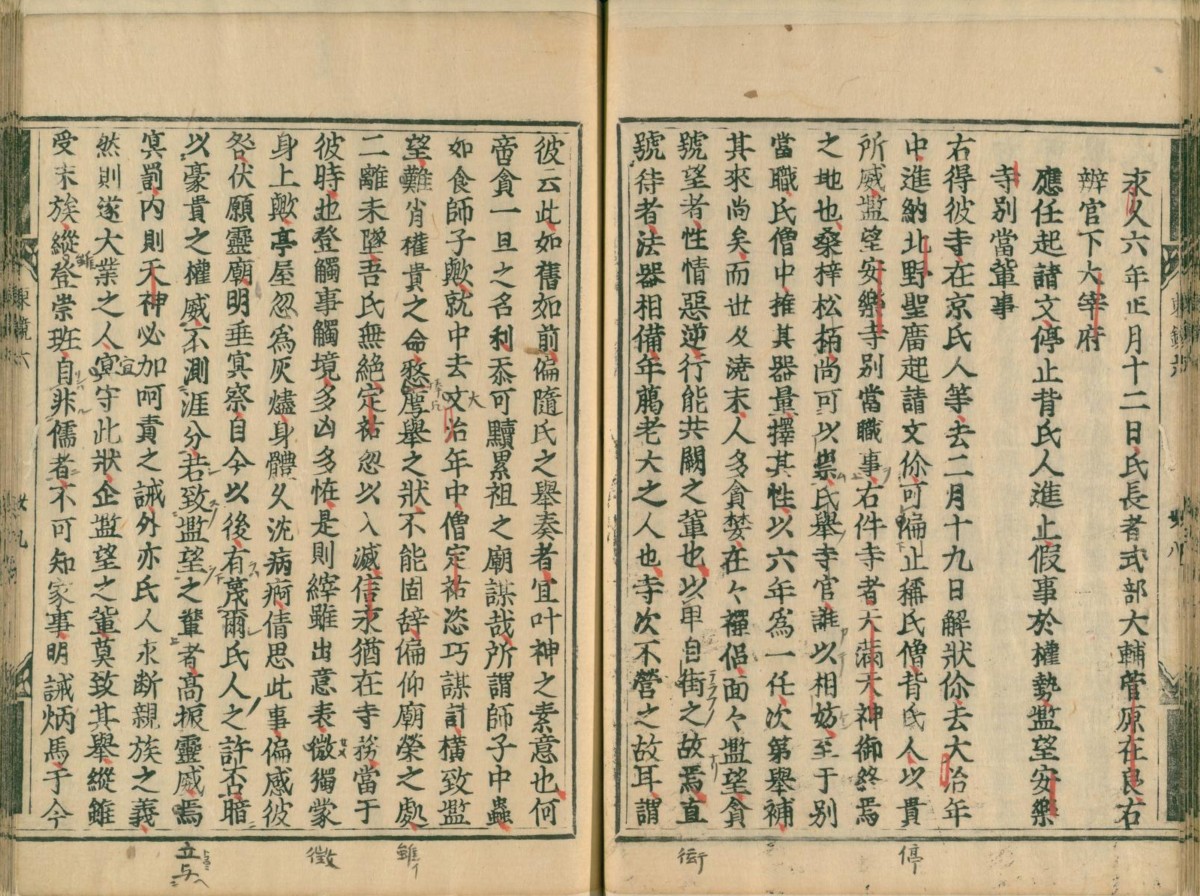 求久六年正月十二日氏長者式部大輔菅原在良右
辨官下大宰府
應任起請文停止背氏人進止假事於權勢濫望安樂
寺別當輩事
右得彼寺在京氏人等去二月十九日解狀偁去大治年
中進納北野聖廣起請文偁可偏止稱氏僧背氏人以貴
所威濫望安樂寺別當職事右件寺者天滿天神御終焉
之地也桑梓松柏尚可以祟氏舉寺官誰以相妨至于別
當職氏僧中推其器量擇其性以六年為一任次第舉補
其來尚矣而世及澆末人多貪婪在々禪侶面々濫望貪
號望者性情惡逆行能共闕之輩也以早自街之故焉直
號待者法器相備年﨟老大之人也寺次不營之故耳謂
彼云此如舊如前偏隨氏之舉奏者宜叶神之素意也何
啻貪一旦之名利忝可黷累祖之廟謀哉所謂師子中蟲
如食師子歟就中去文治年中僧定祐恣巧謀計橫致濫
望難肖權貴之命憖䧹舉之狀不能固辭偏仰廟榮之處
二離未墜吾氏無絕定祐忽以入滅信永猶在寺務當于
彼時也登觸事觸境多凶多恠是則縡雖出意表微獨蒙
身上歟亭屋忽為灰燼身體久沈病痾倩思此事偏感彼
咎伏願靈廟明垂冥察自今以後有蔑爾氏人之許否暗
以豪貴之權威不測涯分若致濫望之輩者高振靈威焉
冥罰內則天神必加呵責之誡外亦氏人永斷親族之義
然則遂大業之人冥守此狀企濫望之輩莫致其舉縱雖
受末族縱登崇班自非儒者不可知家事明誡炳焉于今